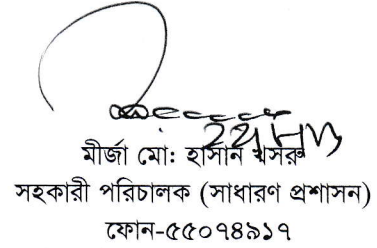 মীর্জা মো: হাসান খসরু
সহকারী পরিচালক (সাধারণ প্রশাসন)
ফোন-৫৫০৭৪৯১৭